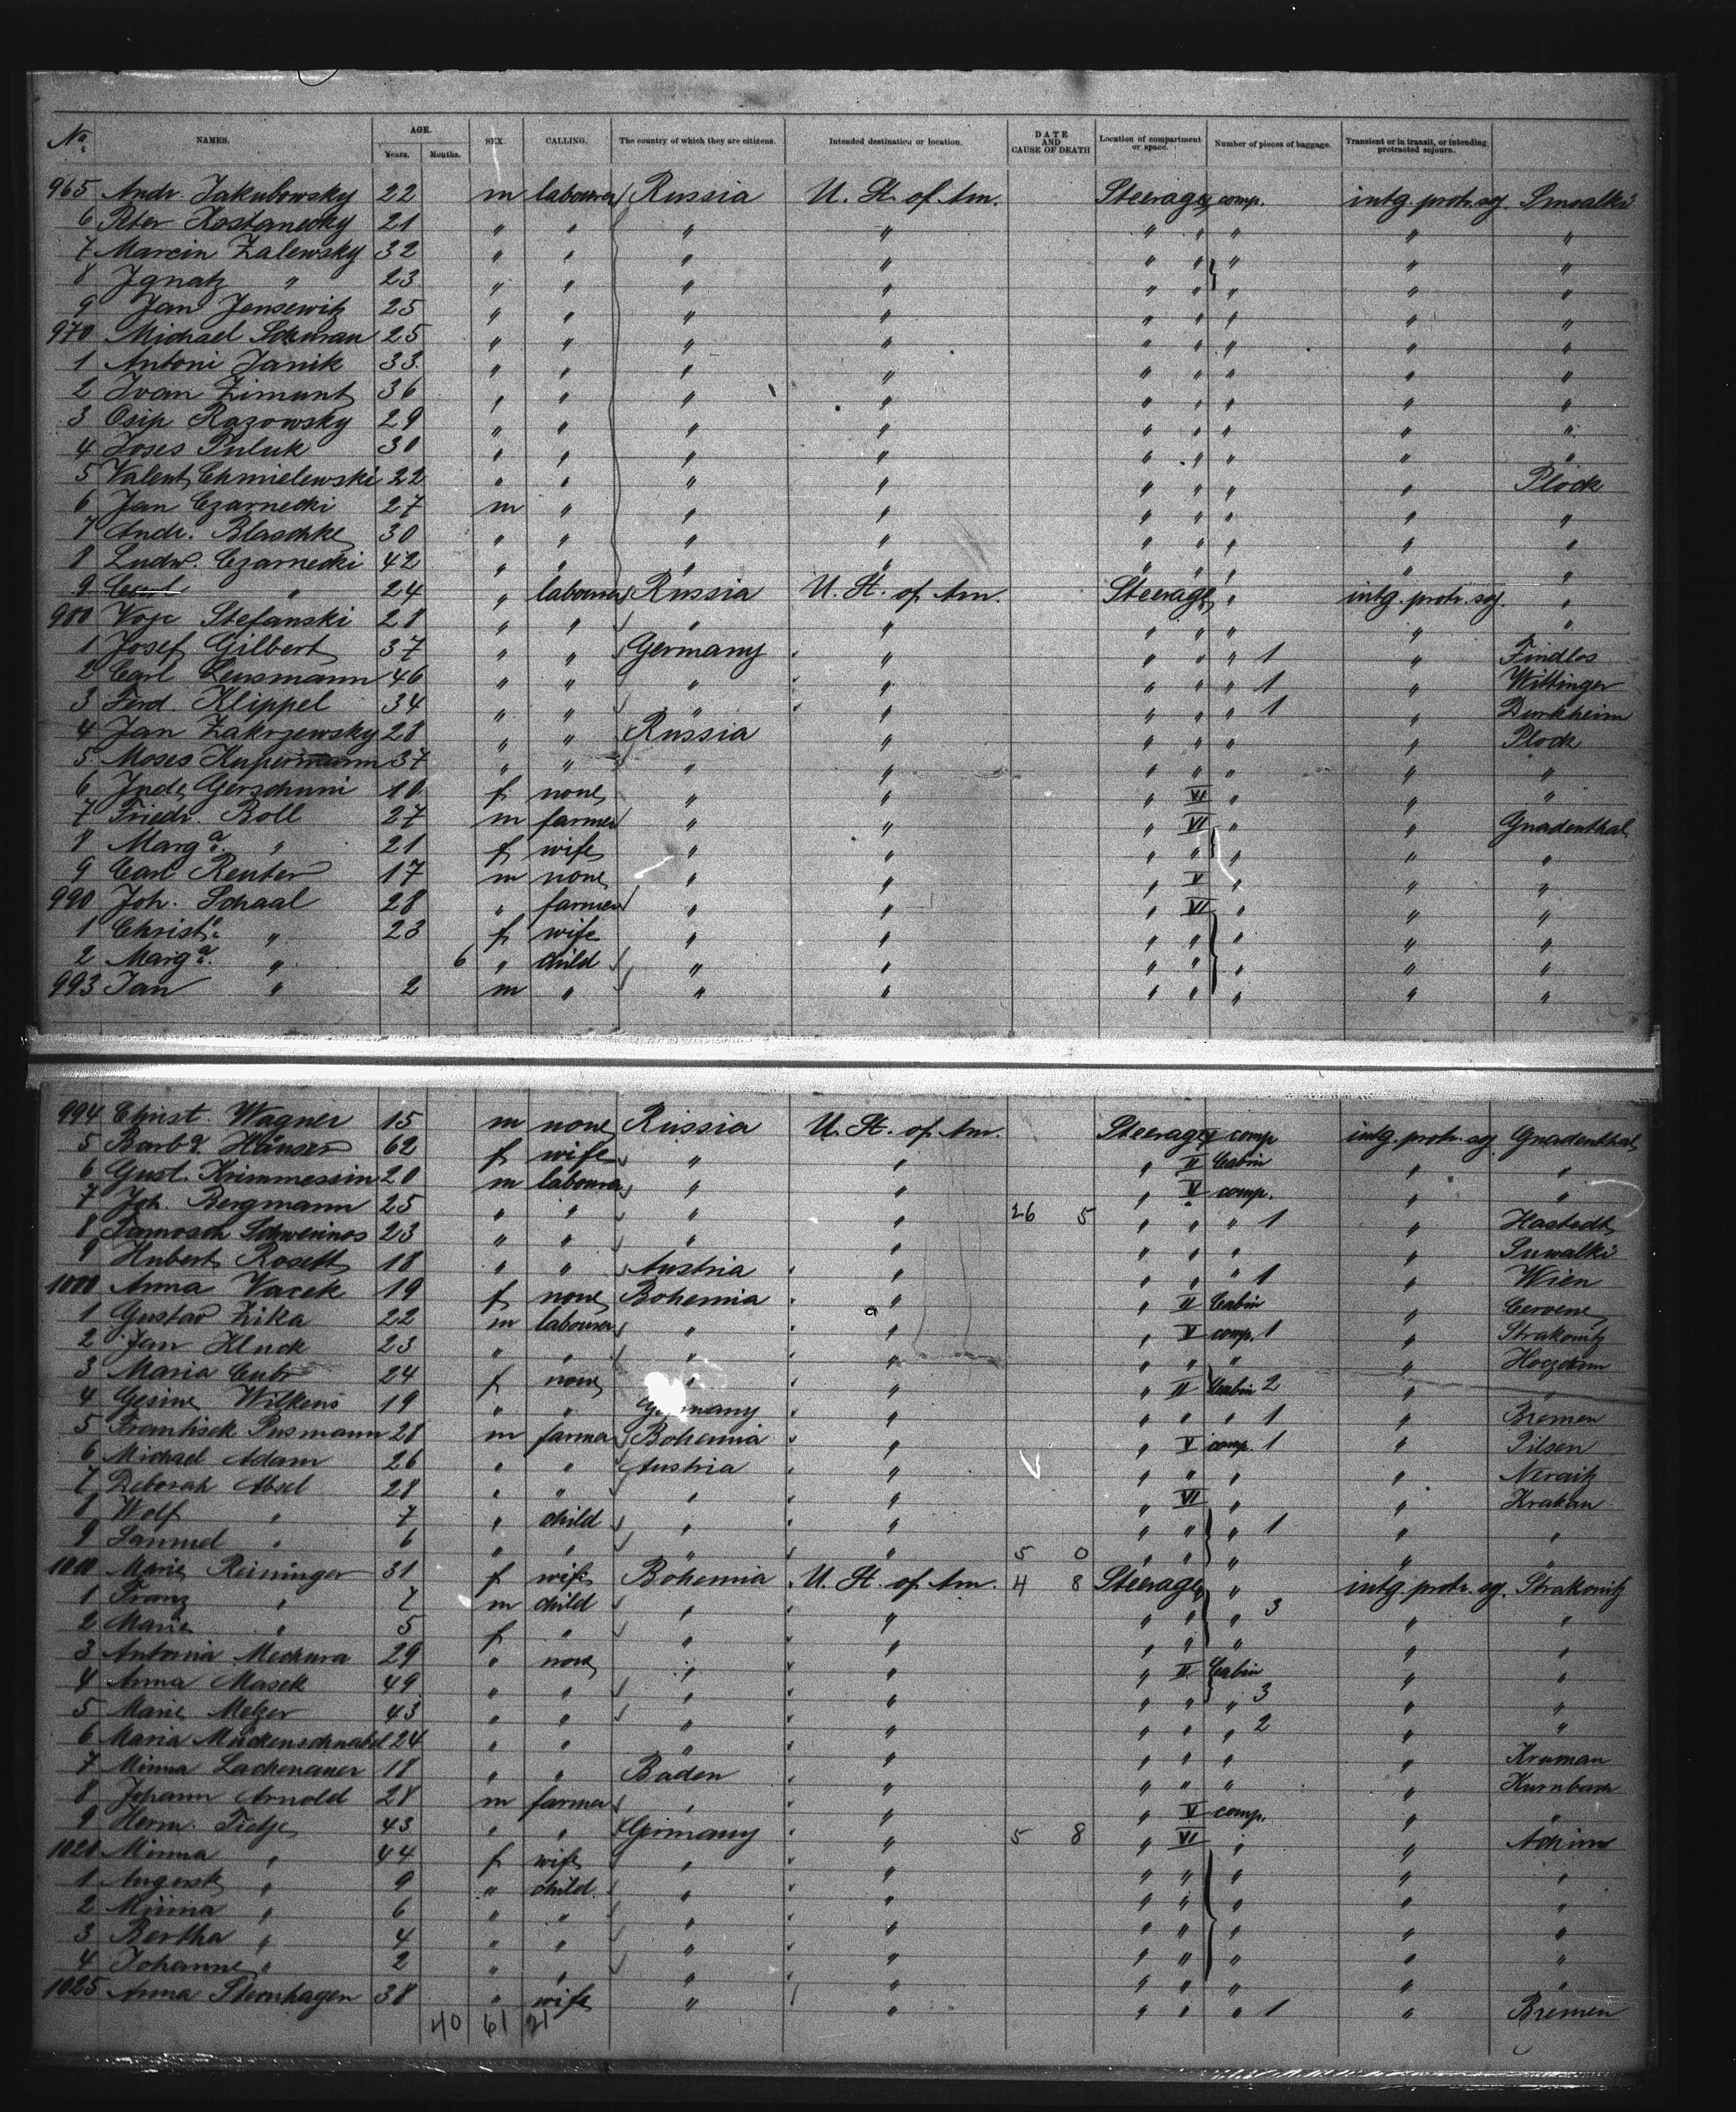 No. NAMES. AGE. Years. Months. SEX. CALLING. The country of which they are citizens. Intended destination or location. DATE AND CAUSE OF DEATH Location of compartment or space. Number of pieces of baggage. Transient or in transit, or intending protracted sojourn.
965 Andr. Jakubowsky 22 m labourer Russia U. St. of Am. Steerage comp. intg. protr. soj.
6 Peter Kostanecky 21 " " " " " " " " "
7 Marcin Zalewsky 32 " " " " " " " " "
8 Ignatz " 23 " " " " " " " " "
9 Jan Jensewitz 25 " " " " " " " " "
970 Michael 25 " " " " " " " " "
1 Antoni Janik 33 " " " " " " " " "
2 Ivan Zimunt 36 " " " " " " " " "
3 Osip Razowsky 29 " " " " " " " " "
4 Joses Puluk 30 " " " " " " " " "
5 Valent. Chmielewski 22 " " " " " " " " Plock
6 Jan Czarnecki 27 m " " " " " " " "
7 Andr. Blaschke 30 " " " " " " " " "
8 Ludw. Czarnecki 42 " " " " " " " " "
9 Carl " 24 " labourer Russia U. St. of Am. Steerage " " intg. protr. soj. "
980 Vojc Stefanski 28 " " " " " " " " "
1 Josef Gilbert 37 " " Germany " " " " 1 " Findlos
2 Carl Lensmann 46 " " " " " " " 1 " Wittinger
3 Ferd. Klippel 34 " " " " " " " 1 " Durkheim
4 Jan Zakrzewsky 28 " " Russia " " " " " Plock
5 Moses Kupermann 37 " " " " " " " " "
6 Inde Gerschuni 10 f none " " " VI " " "
7 Friedr. Boll 27 m farmer " " " VI " " Gnadenthal
8 Marg.a " 21 f wife " " " " " " "
9 Carl Reuter 17 m none " " " V " " "
990 Joh. Schaal 28 " farmer " " " VI " " "
1 Christ.e " 23 f wife " " " " " " "
2 Marg.a " 6 " child " " " " " " "
993 Jan " 2 m " " " " " " " "
994 Christ. Wagner 15 m none Russia U. St. of Am. Steerage V comp intg. protr. soj. Gnadenthal
5 Barb.a Häuser 62 f wife " " " II Cabin " "
6 Gust. Krimmessin 20 m labourer " " " V comp. " "
7 Joh. Bergmann 25 " " " " 26 5 " " " 1 " Hastedt
8 Schwerinos 23 " " " " " " " " Suwalki
9 Hubert Rosett 18 " " Austria " " " " 1 " Wien
1000 Anna Vacek 19 f none Bohemia " " II Cabin " Cervene
1 Gustav Zika 22 m labourer " " " V comp. 1 " Strakonitz
2 Jan Kluck 23 " " " " " " " "
3 Maria Cubr 24 f none " " " II Cabin 2 " "
4 Gesine Wilkens 19 " " Germany " " " " 1 " Bremen
5 Frantisek Pusmann 28 m farmer Bohemia " " V comp. 1 " Pilsen
6 Michael Adam 26 " " Austria " " " " "
7 Deborah Abel 28 " " " " " VI " " Krakau
8 Wolf " 7 " child " " " " " 1 " "
9 Samuel " 6 " " " " 5 0 " " " " "
1010 Marie Reininger 31 f wife Bohemia U. St. of Am. 4 8 Steerage " " intg. protr. soj. Strakonitz
1 Franz " 7 m child " " " " " 3 " "
2 Marie " 5 f " " " " " " " "
3 Antonia Mechura 29 " none " " " II Cabin " "
4 Anna Masek 49 " " " " " " " 3 " "
5 Marie Melzer 43 " " " " " " " 2 " "
6 Maria Mückenschnabel 24 " " " " " " " " Kruman
7 Minna Lachenauer 18 " " Baden " " " " " Kurnbach
8 Johann Arnold 28 m farmer " " " V comp. " "
9 Herm. Tietje 43 " " Germany " 5 8 " VI " " Achim
1020 Minna " 44 f wife " " " " " " "
1 August " 9 " child " " " " " " "
2 Minna " 6 " " " " " " " " "
3 Bertha " 4 " " " " " " " " "
4 Johanne " 2 " " " " " " " " "
1025 Anna Sternhagen 38 " wife " " " " " 1 " Bremen
40 61 21